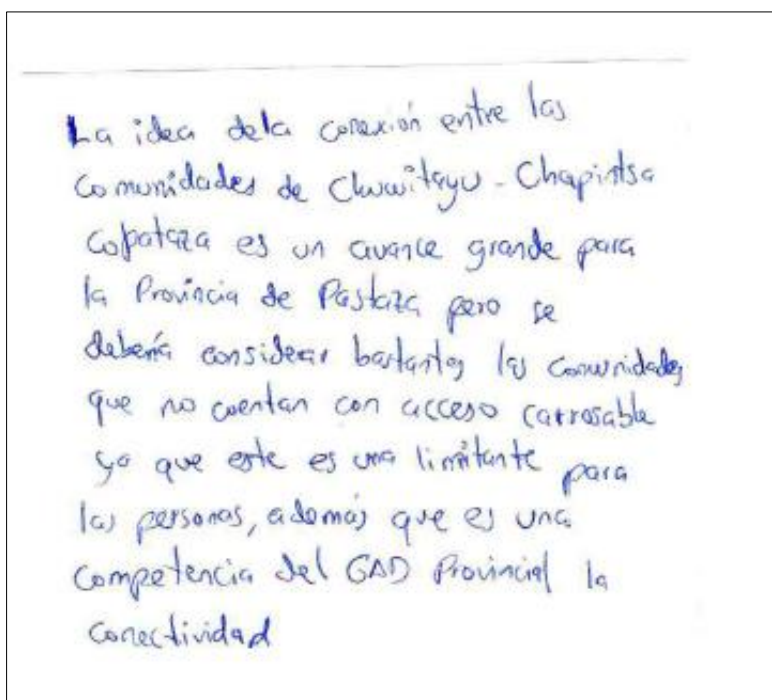 La idea dela conexión entre las
comunidades de Chuwitayu - Chapintsa
Copataza es un avance grande para
la Provincia de Pastaza pero se
debería considerar bastantes las comunidades
que no cuentan con acceso carrosable
ya que este es una limitante para
las personas, además que es una
competencia del GAD Provincial la
conectividad